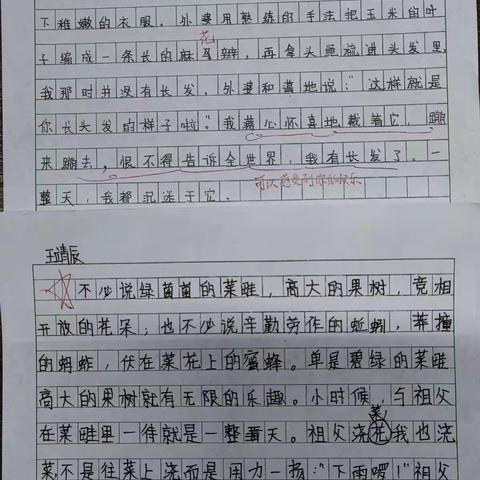 下稚嫩的衣服。外婆用熟练的手法把玉米的叶
花
子编成一条长的麻辫，再拿头绳梳进头发里
我那时并没有长发，外婆和蔼地说："这样就是
你长头发的样子啦。"我满心怀喜地戴着它，蹦
来蹦去，恨不得告诉全世界，我有长发了。一
整天，我都沉迷于它。
可以感受到你的快乐
王靖辰
不必说绿茵茵的菜畦，高大的果树，竞相
开放的花朵；也不必说辛勤劳作的蚯蚓，莽撞
的蚂蚱，伏在菜花上的蜜蜂。单是碧绿的菜畦
高大的果树就有无限的乐趣。小时候，与祖父
菜
在菜畦里一待就是一整天。祖父浇花我也浇
菜不是往菜上浇而是用力一扬："下雨啰！"祖父